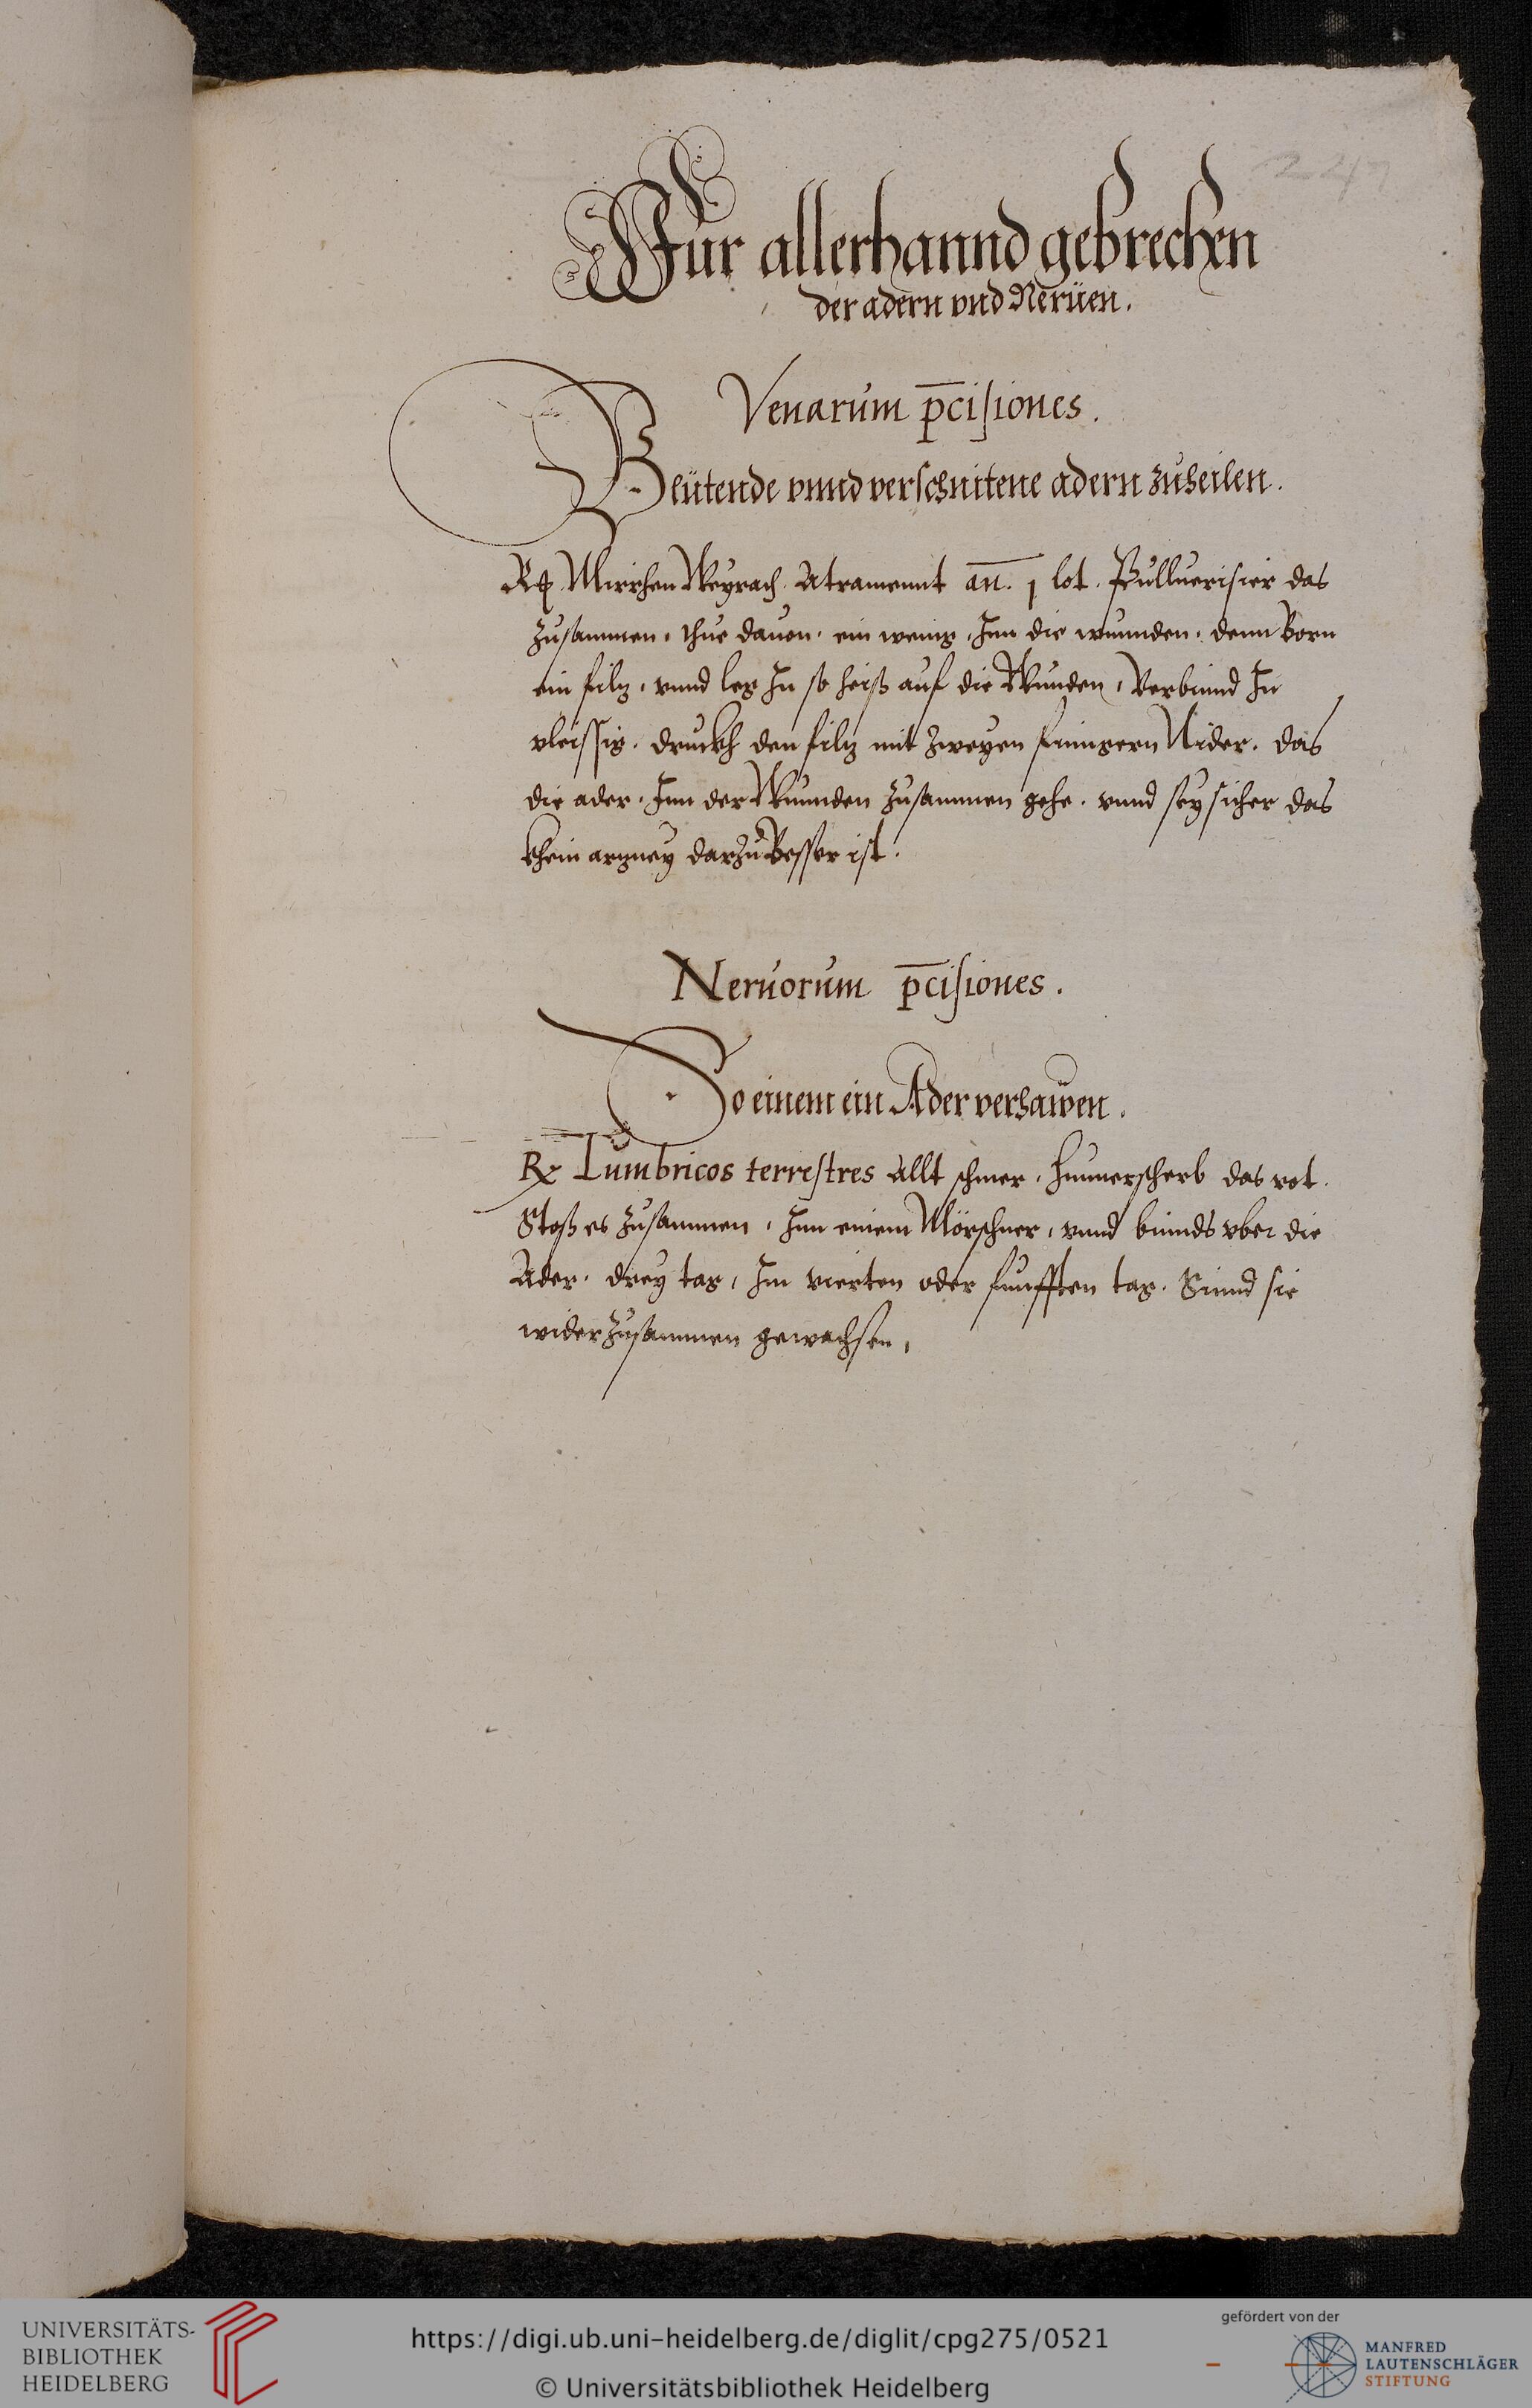 247
Fur allerhannd gebrechen
der adern vnd Nerüen.
Venarum p̄cisiones.
Blütende vnnd verschnitene adern zuheilen.
℞ Mirrhen Weyrach. Atramennt an̄. j lot. Pulluerisier das
zusammen, thue dauon, ein wenig, Inn die wunnden, denn Born
ein filz, vnnd leg In so heiß auf die Wunden, Verbinnd In
vleissig. druckh den filz mit zweyen finngern Nider. das
die ader, Inn der Wunnden zusammen gehe. vnnd sey sicher das
khein arzney darzu Besser ist.
Neruorum p̄cisiones.
So einem ein Ader verhawen.
℞ Lumbricos terrestres Allt schmer, Hunerscherb das rot.
Stoß es zusammen, Inn einem Mörschner, vnnd binnds vber die
Ader. drey tag, Im vierten oder funfften tag. Sinnd sie
wider zusammen gewachsen,
UNIVERSITÄTS-
BIBLIOTHEK
HEIDELBERG
https://digi.ub.uni-heidelberg.de/diglit/cpg275/0521
© Universitätsbibliothek Heidelberg
gefördert von der
MANFRED
LAUTENSCHLÄGER
STIFTUNG